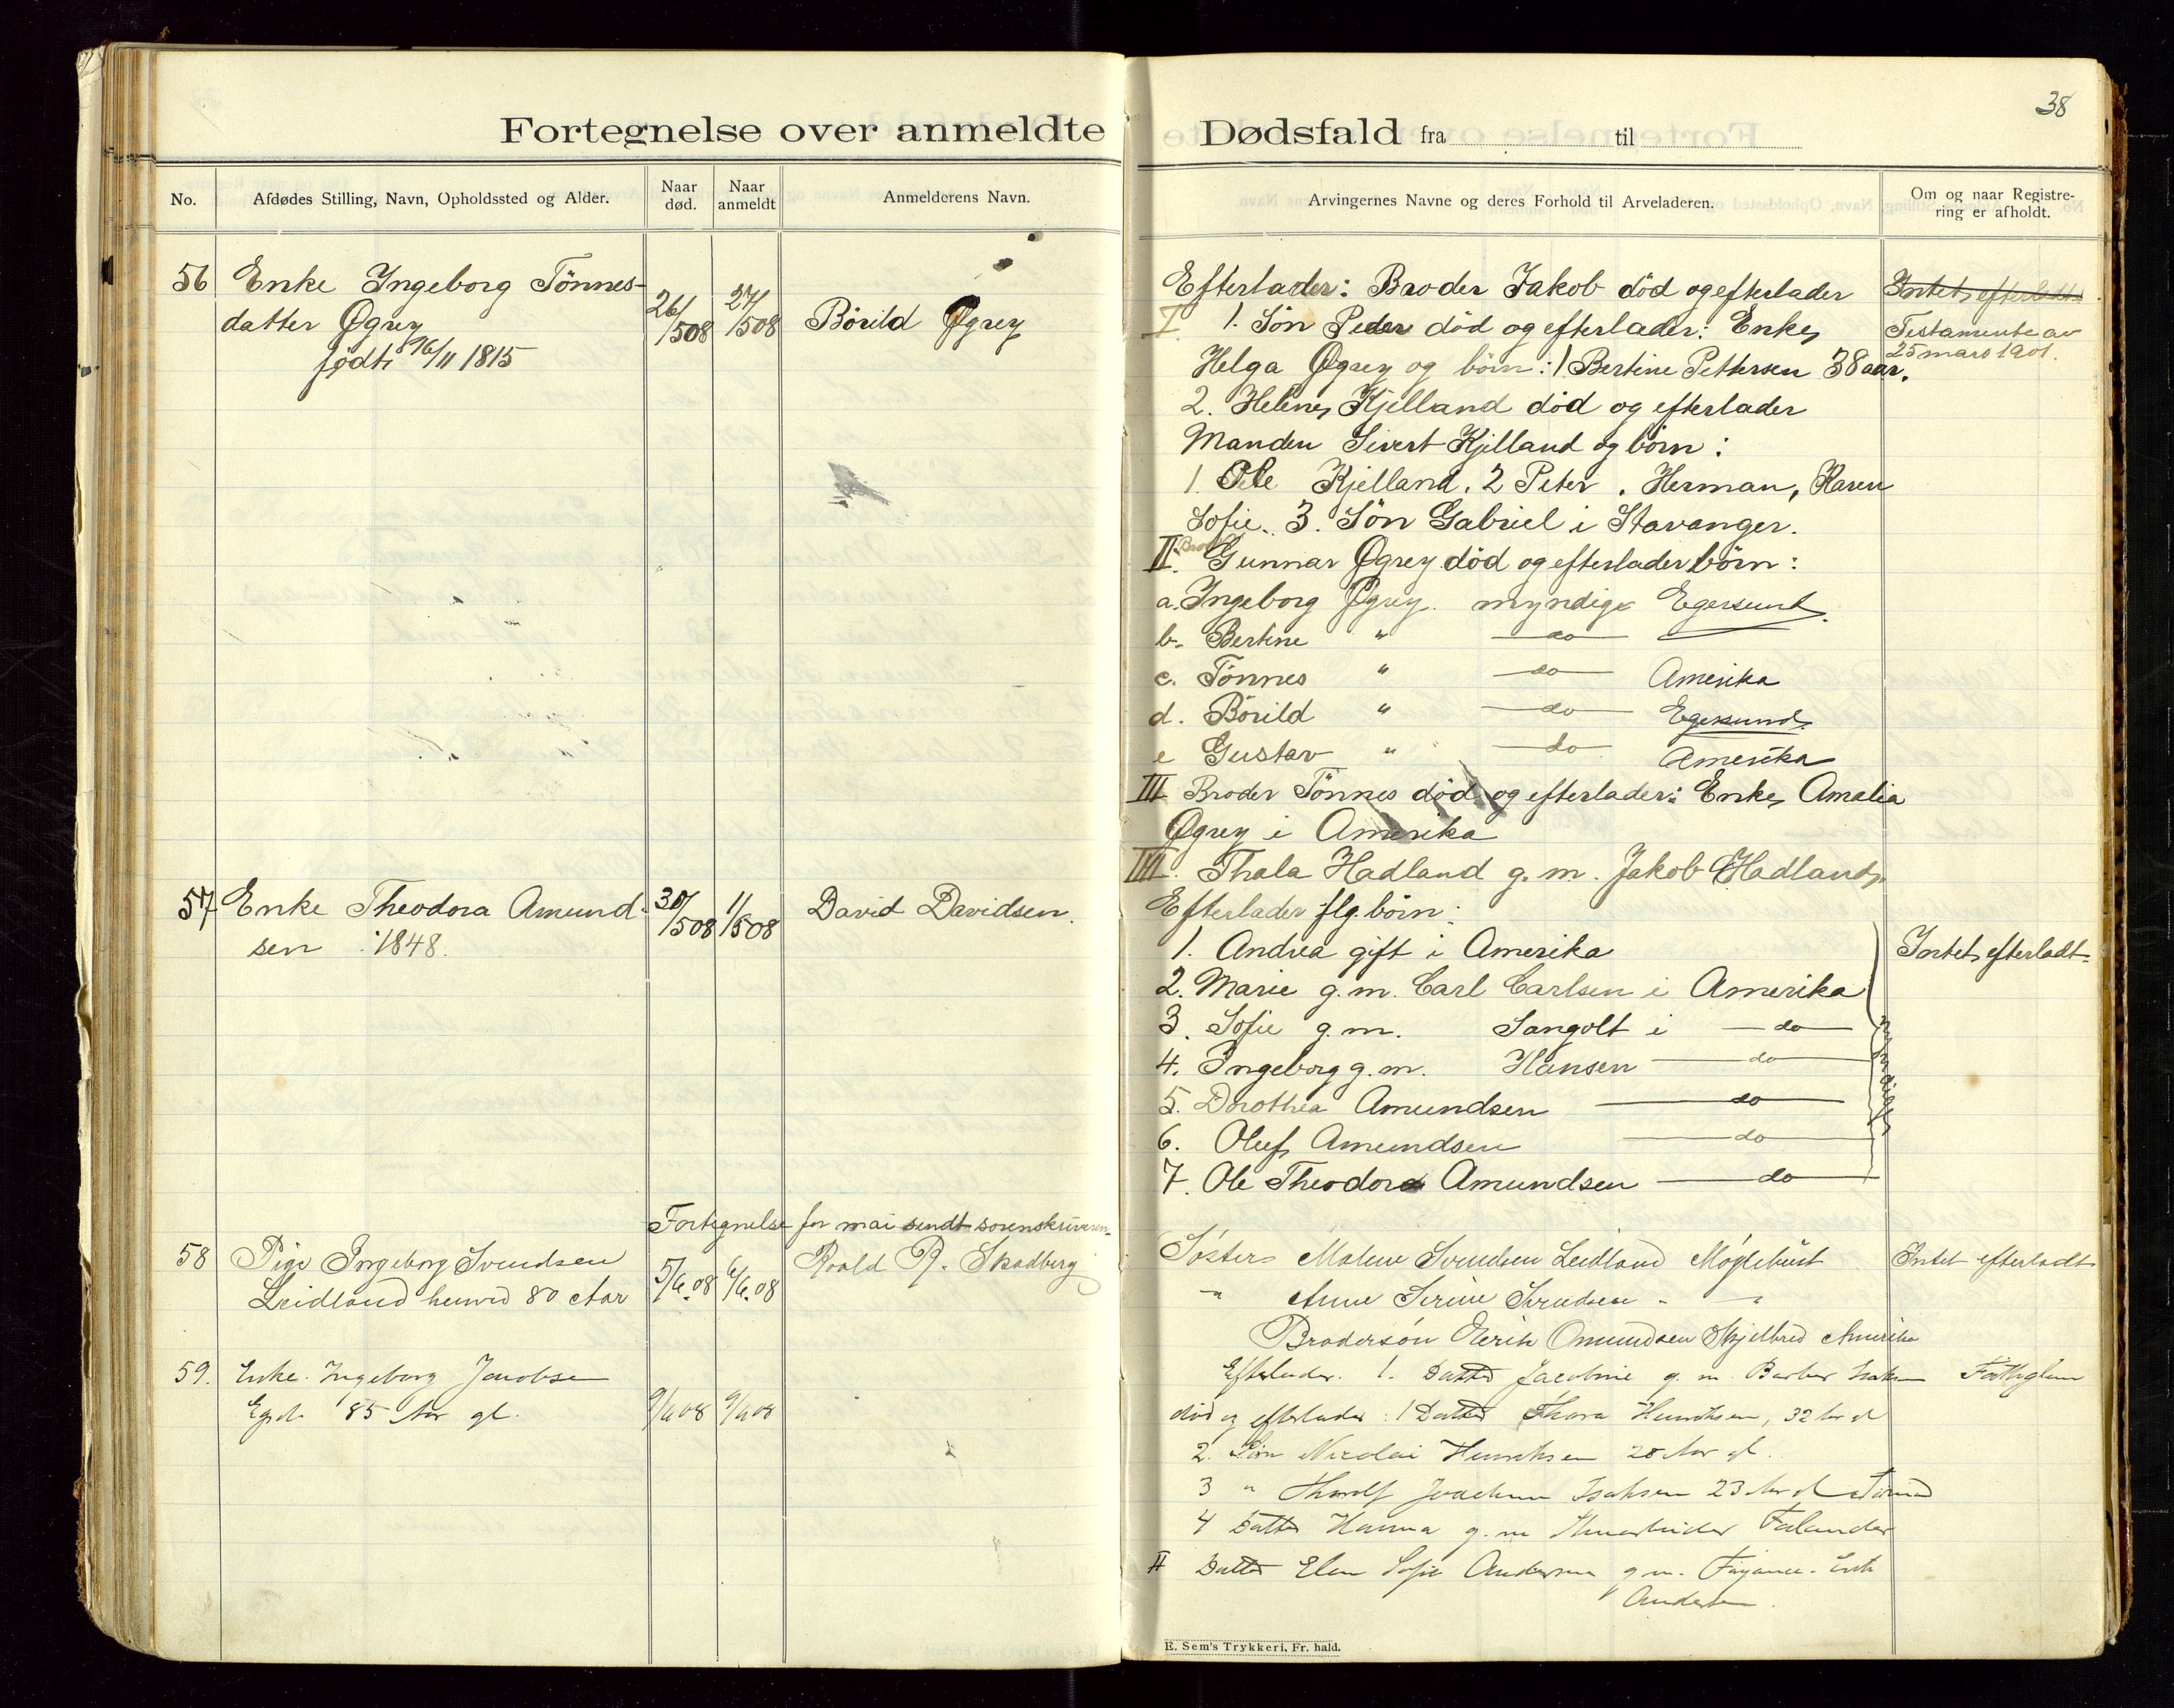 38
Fortegnelse over anmeldte Dødsfald fra til
No.
Afdødes Stilling, Navn, Opholdssted og Alder.
Naar død.
Naar anmeldt
Anmelderens Navn.
Arvingernes Navne og deres Forhold til Arveladeren.
Om og naar Registrering er afholdt.
56 Enke Ingeborg Tönnes-
datter Øgrey
födt 16/11 1815
26/508
27/508
Börild Øgrey
Efterlader: Broder Jakob död og efterlader
I 1. Sön Peder död og efterlader: Enke,
Helga Øgrey og börn: 1 Bertine Pettersen 38 aar.
2. Helene Kjelland död og efterlader
Manden Sivert Kjelland og börn:
1. Ole Kjelland, 2 Peter, Herman, Karen
Sofie. 3. Sön Gabriel i Stavanger.
II. Broder Gunnar Øgrey död og efterlader börn:
a. Ingeborg Øgrey. myndige Egersund.
b. Bertine " do
c. Tönnes " do Amerika
d. Börild " do Egersund
e Gustav " do Amerika
III Broder Tönnes död og efterlader: Enke, Amalia
Øgrey i Amerika
Intet efterladt
Testamente av
25 mars 1901.
57 Enke Theodora Amund-
sen 1848.
30/508
1/508
David Davidsen.
IIII. Thala Hadland g. m. Jakob Hadland,
Efterlader flg. börn:
1. Andrea gift i Amerika
2. Marie g. m. Carl Carlsen i Amerika
3. Sofie g. m. Sangolt i do
4. Ingeborg g. m. Hansen do
5. Dorothea Amundsen do
6. Oluf Amundsen do
7. Ole Theodor Amundsen do
myndige
Intet efterladt
Fortegnelse for mai sendt sorenskriveren
58 Pige Ingeborg Svendsen
Leidland henved 80 Aar
5/6.08
6/6.08
Roald R. Skadberg
Söster Malene Svendsen Leidland Möglebust
" Anne Serine Svendsen - "
Brodersön Eerik Omundsen Skjelbred Amerika
Intet efterladt
59. Enke Ingeborg Jacobsen
Egsd. 85 Aar gl.
9/6 08
9/6 08
Efterlader. 1. Datter Jacobine g. m. Barber Isaksen
död og efterlader: 1 Datter Thora Henriksen, 32 Aar gl
2. Sön Nicolai Henriksen 28 Aar gl.
3 " Thorolf Joachim Isaksen 23 Aar gl
4 Datter Hanna g. m. Falander
II Datter Elen Sofie Andersen g. m.
Andersen.
Fattiglem
E. Sem's Trykkeri, Fr. hald.